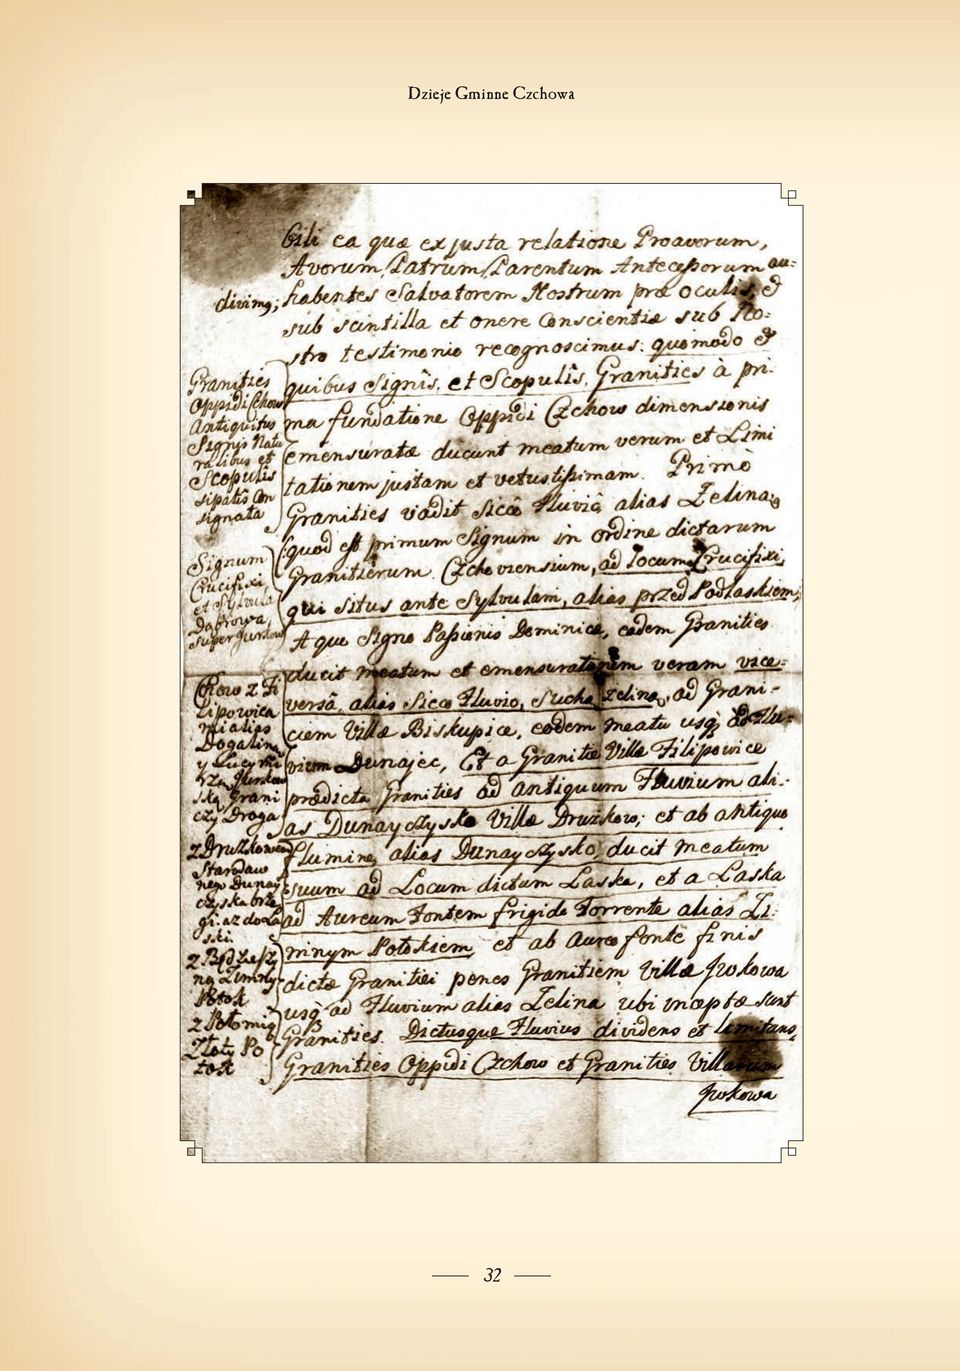 Dzieje Gminne Czchowa
bili ea quæ ex justa relatione Proavorum,
Avorum, Patrum, Parentum Antecessorum au=
divimq; habentes Salvatorem Nostrum præ oculis, et
sub scintilla et onere Conscientiæ sub No=
stro testimonio recognoscimus: quomodo et
quibus Signis, et Scopulis, Granities à pri=
ma fundatione Oppidi Czchow dimensionis
emensuratæ ducunt meatum verum et Limi
tationem justam et vetustissimam. Primò
Granities vadit Sicco Fluviô, alias Zelina,
quod est primum Signum in ordine dictarum
Granitierum Czchoviensium, ad locum Crucifixi,
qui situs ante Sylvulam, alias przed Podlaskiem,
A que Signo Passionis Dominicæ, eadem Granities
ducit meatum et emensurationem veram vice=
versâ, alias Sicco Fluvio, Sucha Zelina, ad Grani=
ciem Villæ Biskupice, eodem meatu usq; ad Flu=
vium Dunajec, Et a Granitie Villæ Filipowice
prædicta Granities ad antiquum Fluvium ali=
as Dunayczysko Villæ Druzkow, et ab antiquo
flumine, alias Dunayczysko, ducit meatum
suum ad Locum dictum Laska, et a Laska
ad Aureum Fontem frigido Torrente alias Zi=
mnym Potokiem, et ab aureo fonte finis
dictæ Granitiei penes Granitiem Villæ Jwkowa
usq; ad Fluvium alias Zelina ubi inceptæ sunt
Granities. Dictusque Fluvius dividens et limitans,
Granities Oppidi Czchow et Granities Villarum
Jwkowa
Granities
Oppidi Czchow
Antiquitus
Signis Natu
ralibus et
Scopulis
sipatis Con
signata
Signum
Crucifixi
et Sylvula
Dabrowa,
super
Row z Fi
lipowica
mi alias
Dogalina
y
Grani
czy Droga
z Druzkowem
Starodaw
nego Dunay
czyska brze
gi az do La
ski.
z
na Zimny
Potok
z
Złoty Po
tok
32